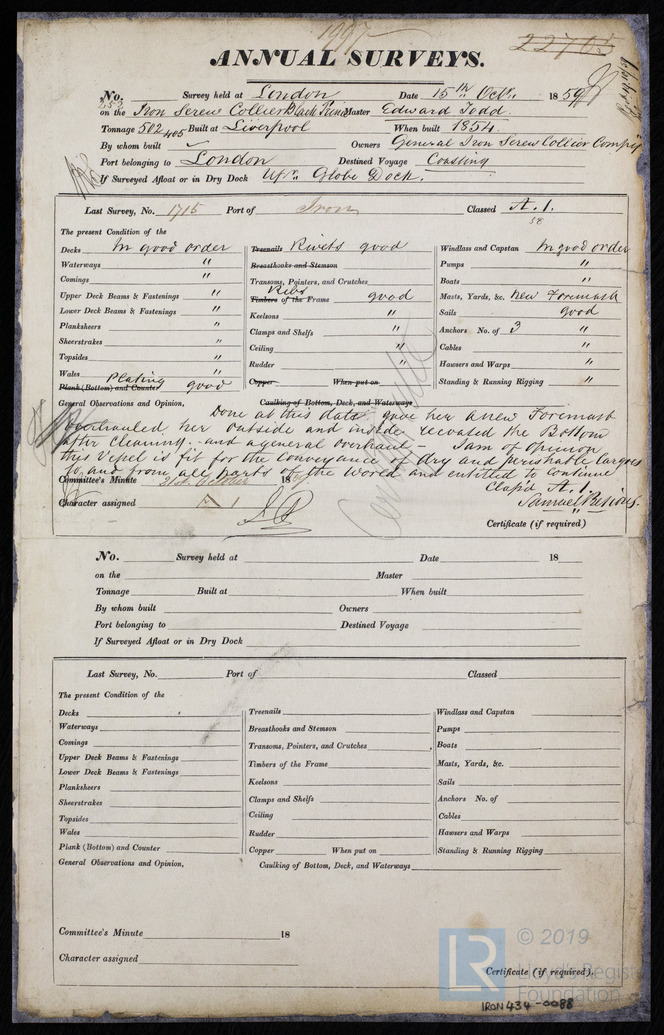 1997
22703
ANNUAL SURVEYS.
No. Survey held at London Date 15th Octr. 1859
253 on the Iron Screw Collier Black Prince Master Edward Todd.
Tonnage 502 405 Built at Liverpool When built 1854.
By whom built Owners General Iron Screw Collier Compy
Port belonging to London Destined Voyage Coasting
If Surveyed Afloat or in Dry Dock Upr. Globe Dock.
Last Survey, No. 1715 Port of Iron Classed A.1.
58
The present Condition of the
Decks In good order Treenails Rivets good Windlass and Capstan In good order
Waterways " Breasthooks and Stemson Pumps "
Comings " Transoms, Pointers, and Crutches Boats "
Upper Deck Beams & Fastenings " Timbers Ribs of the Frame good Masts, Yards, &c. New Foremast
Lower Deck Beams & Fastenings " Keelsons " Sails good
Planksheers " Clamps and Shelfs " Anchors No. of 3 "
Sheerstrakes " Ceiling " Cables "
Topsides " Rudder " Hawsers and Warps "
Wales " Copper When put on Standing & Running Rigging "
Plank (Bottom) and Counter Plating good
General Observations and Opinion, Caulking of Bottom, Deck, and Waterways
Done at this date gave her a new Foremast
overhauled her outside and inside recoated the Bottom
after Cleaning. and a general overhaul - I am of opinion
this Vessel is fit for the Conveyance of dry and perishable Cargoes
to, and from all parts of the World and entitled to Continue
Class'd A.1.
Committee's Minute 21st October 18
Character assigned A 1
Certificate (if required)
No. Survey held at Date 18
on the Master
Tonnage Built at When built
By whom built Owners
Port belonging to Destined Voyage
If Surveyed Afloat or in Dry Dock
Last Survey, No. Port of Classed
The present Condition of the
Decks Treenails Windlass and Capstan
Waterways Breasthooks and Stemson Pumps
Comings Transoms, Pointers, and Crutches Boats
Upper Deck Beams & Fastenings Timbers of the Frame Masts, Yards, &c.
Lower Deck Beams & Fastenings Keelsons Sails
Planksheers Clamps and Shelfs Anchors No. of
Sheerstrakes Ceiling Cables
Topsides Rudder Hawsers and Warps
Wales Copper When put on Standing & Running Rigging
Plank (Bottom) and Counter
General Observations and Opinion, Caulking of Bottom, Deck, and Waterways
Committee's Minute 18
Character assigned
Certificate (if required).
LR © 2019
Lloyd's Register
Foundation
IRON434-0088